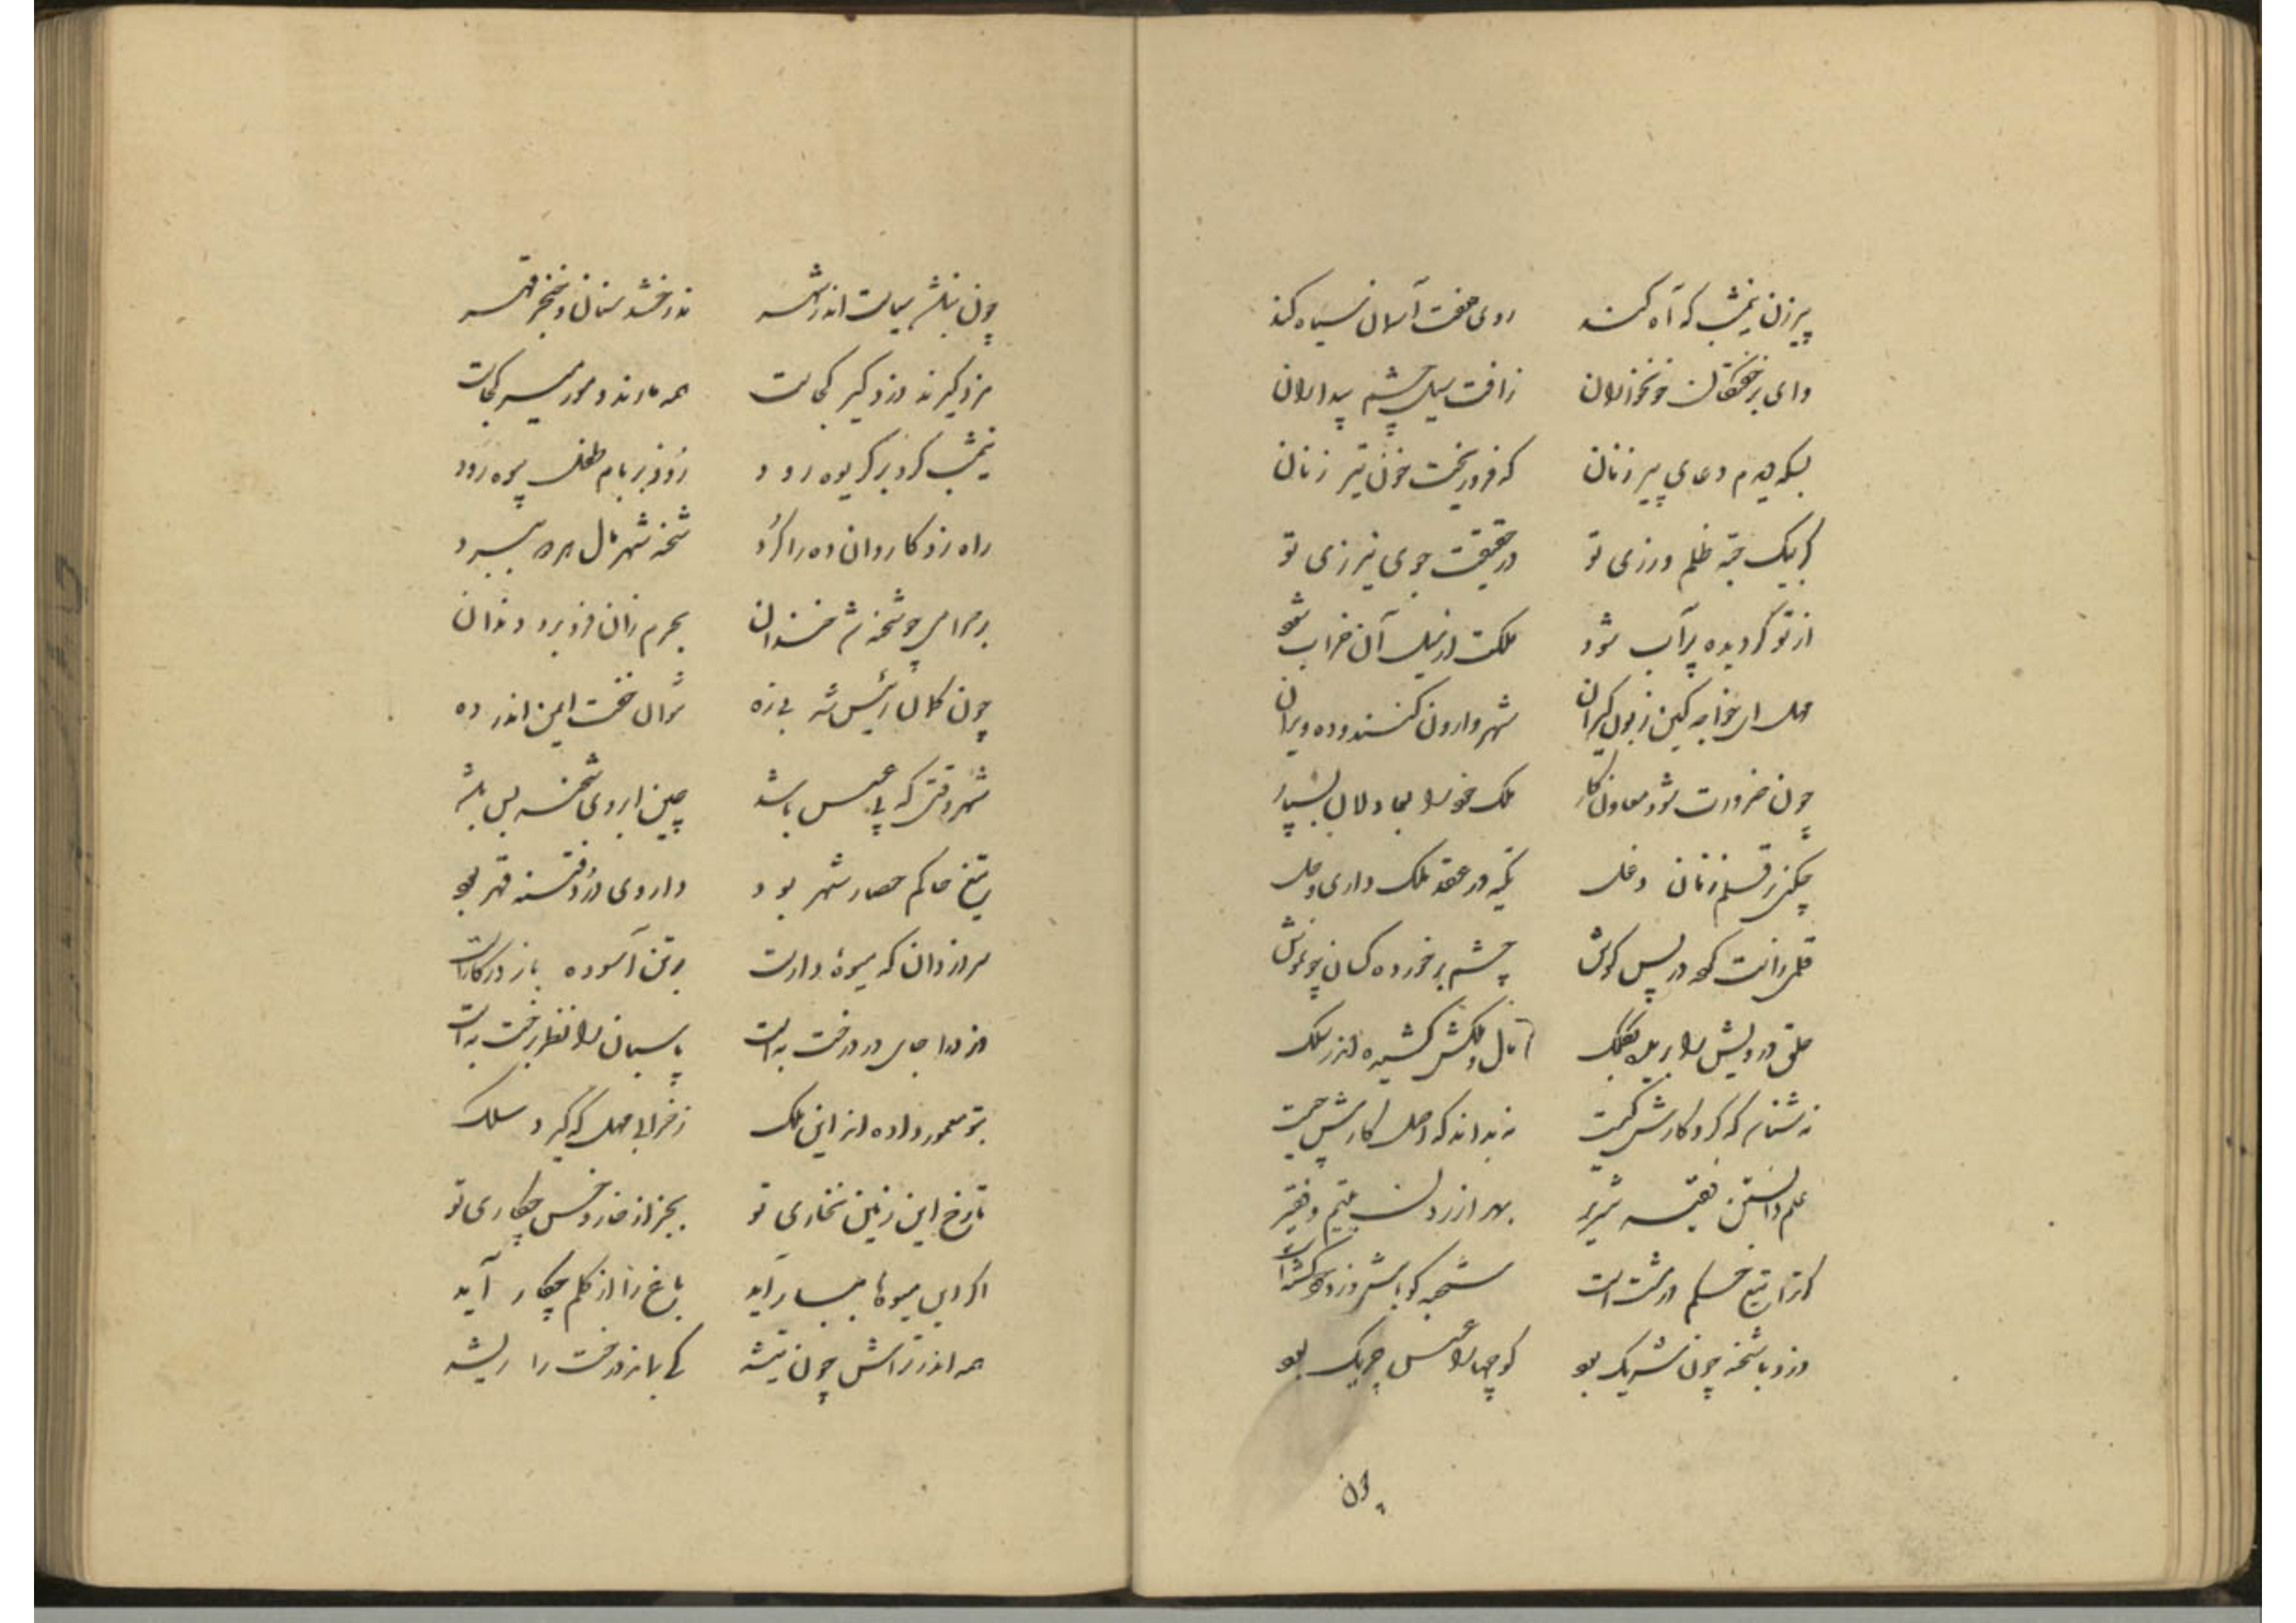 پیرزن نیمشب که آه کند روی هفت آسمان سیاه کند
وای بر خفتگان خونخواران ز آفت سیل چشم بیداران
بسکه دیدم دعای پیر زنان که فرو ریخت خون تیر زنان
گر بیک حبه ظلم ورزی تو در حقیقت جوی نیرزی تو
از تو گر دیده پر آب شود ملکت از سیل آن خراب شود
مهل ای خواجه کین زبون گیران شهر وارون کنند و ده ویران
چون ضرورت شود معاون کار ملک خود را بعادلان بسپار
چکنی قلم زنان دغل تکیه در عقد ملک داری و حل
قلمی راست کرده در پس گوش چشم بر خورده کسان چو
حلق درویش را بریده بکلک مال و ملکش کشیده اندر سلک
نه شناسد که کردگارش کیست نه بداند که اصل کارش چیست
علم دانستن فقیه شریر بهر آزردن یتیم و فقیر
کر ترا تیغ حکم در مشت است شحنه کش باش دزد کشت است
دزد با شحنه چون شریک بود کوچه را عسس چریک بود
چون
چون نباشد سیاست اندر شهر ندرخشد سنان و خنجر قهر
دزد گیرند دزد گیر کجاست همه ماندند و میر کجاست
نیمشب گرد بر گریوه رود روز بر بام طفل بیوه رود
راه زد کاروان ده را کرد شحنه شهر مال میبرد
بر حرامی چو شحنه شد خندان بجرم زان فرو برد دندان
چون کلان رئیس شد بی زه نتوان خفت ایمن اندر ده
شهر وقتی که بی عسس باشد چین ابروی شحنه بس باشد
تیغ حاکم حصار شهر بود داروی درد فتنه قهر بود
سر از دان که میوه دارست بر تن آسوده باز در کارست
دزد را جای در درخت به است پاسبان را نظر برخت به است
بتو معمور داده اند این ملک ز خرابی مهل که گیرد سلک
تا رخ این زمین نخاری تو بجز از خار و خس چکاری تو
اگر این میوها ببار آید باغ را از کلم چکار آید
همه اندر تراش چون تیشه کی بماند درخت را ریشه